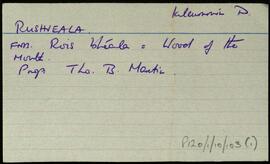 Kilcummin D.
RUSHVEALA.
From. Rois bhéala = Wood of the
Mouth.
Prop Tho. B. Martin.
P120/1/10/103 (1)